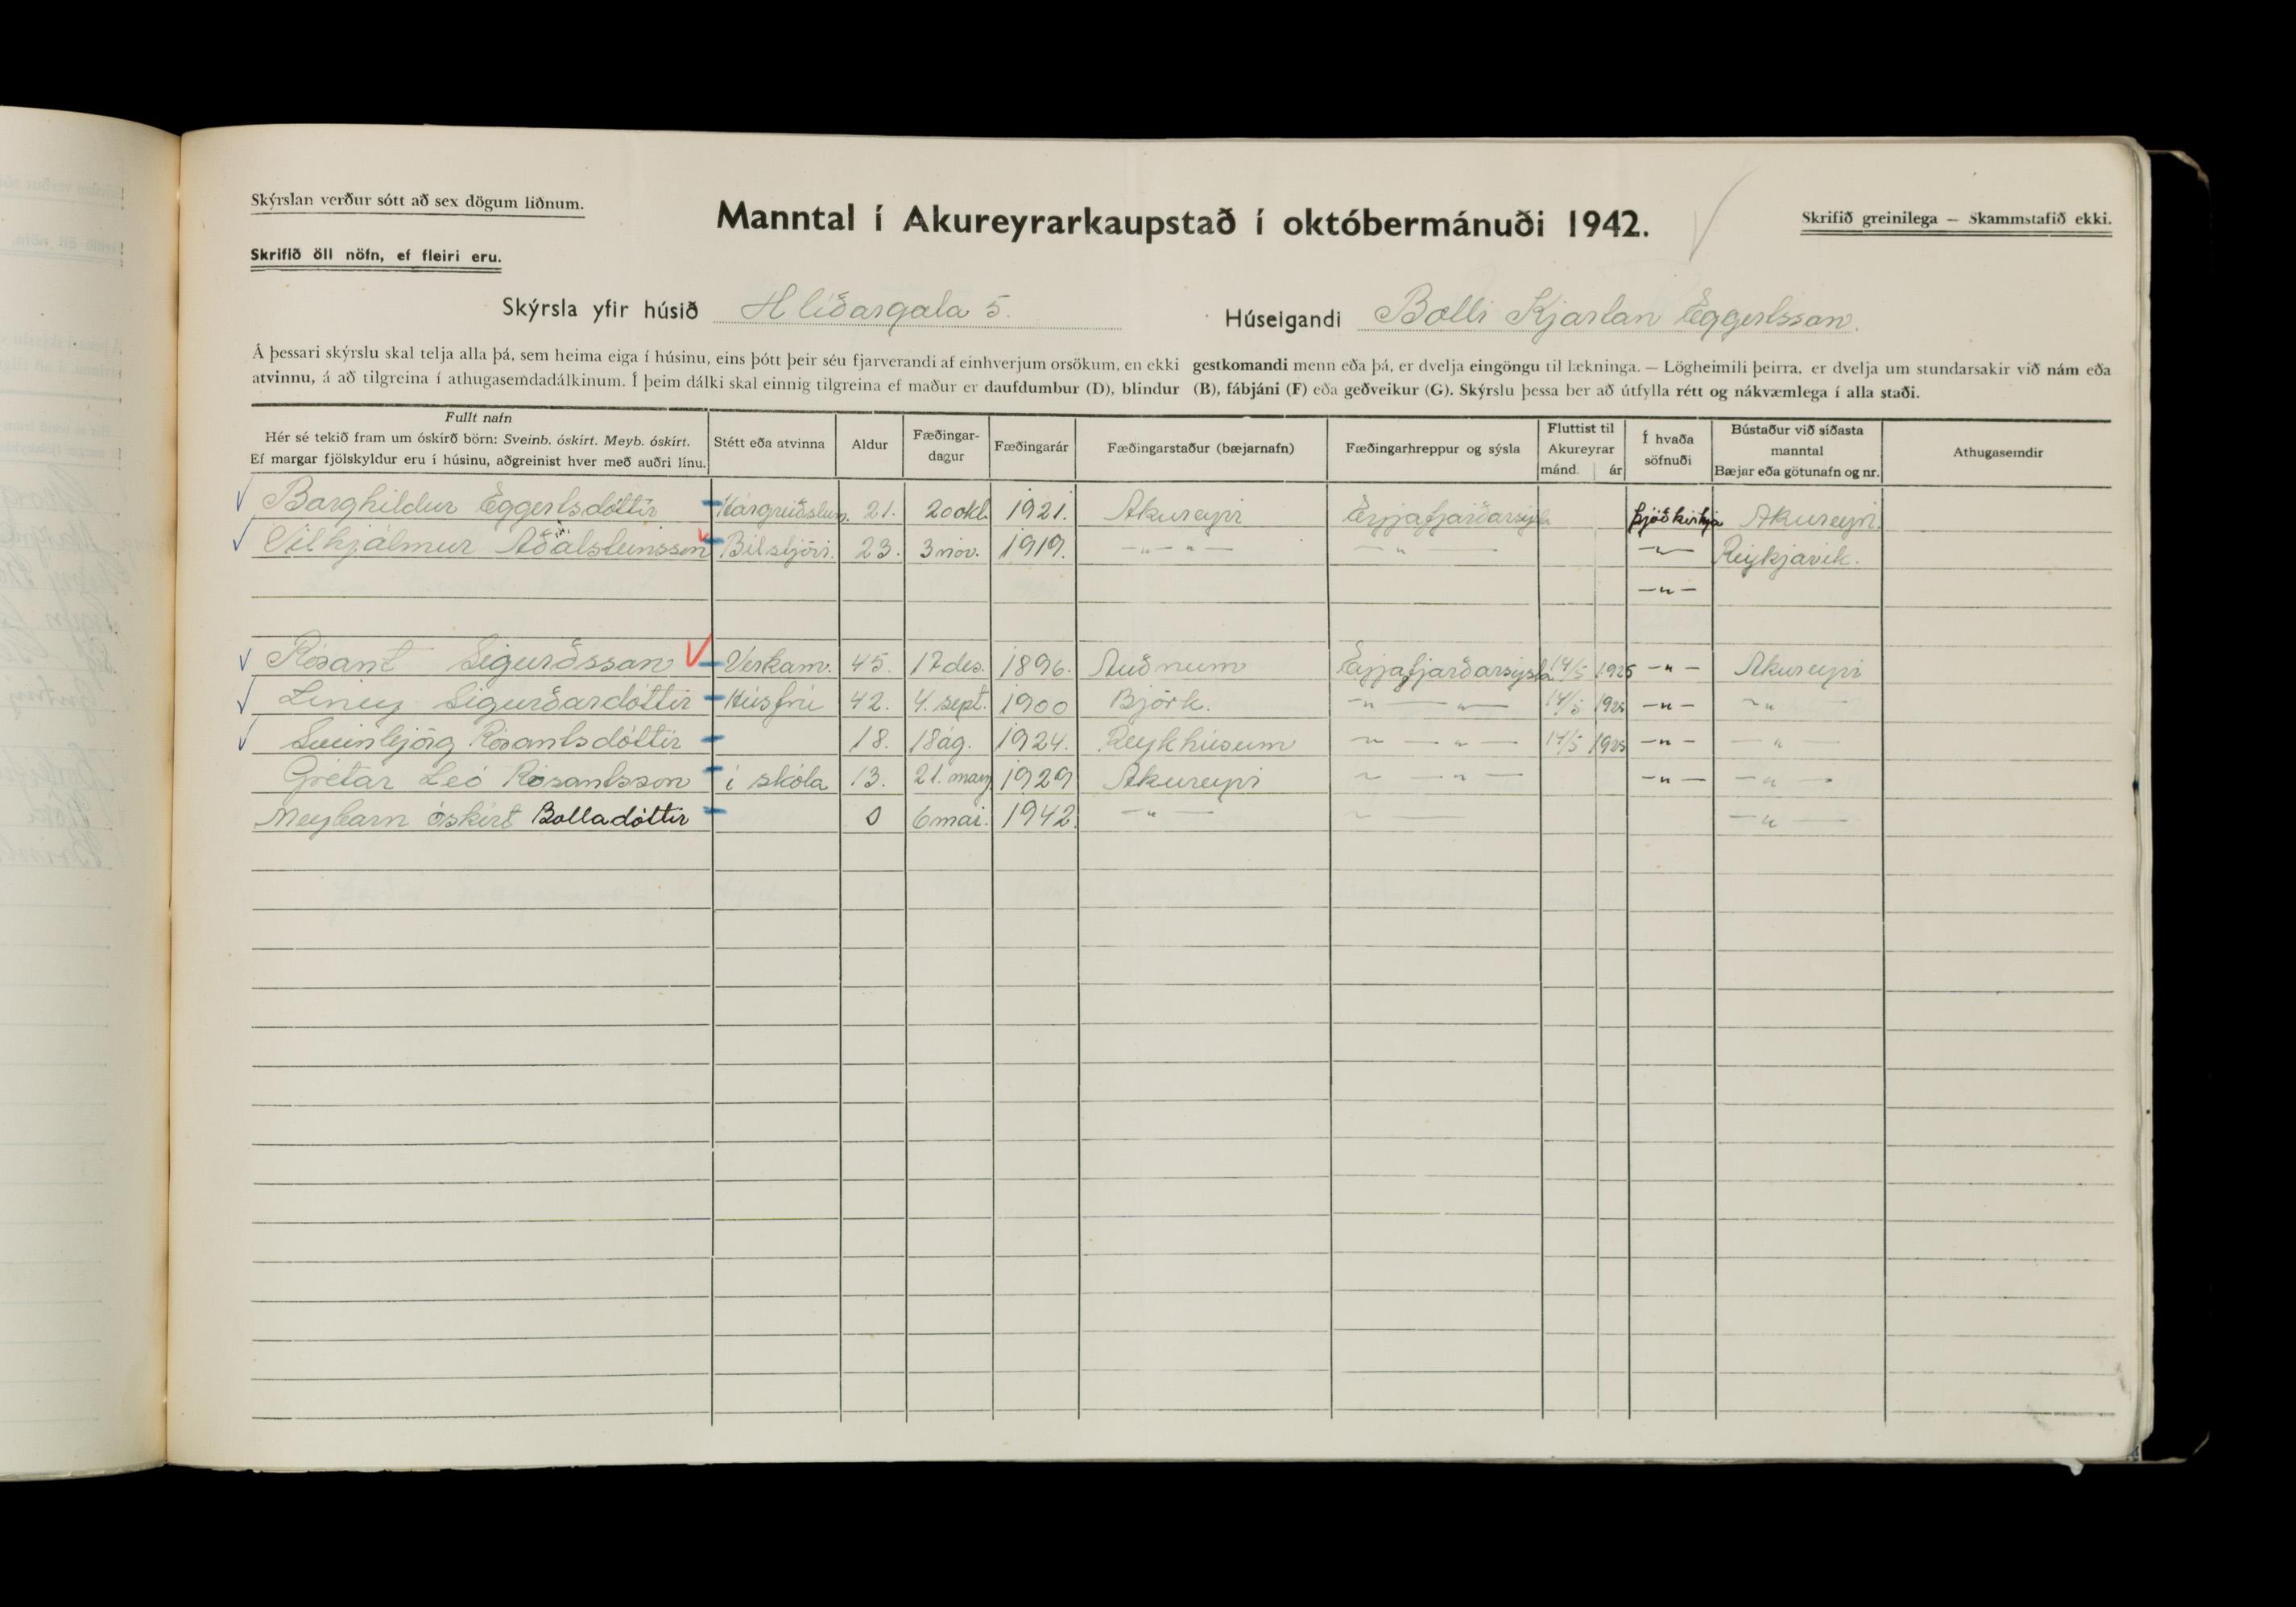 Skýrslan verður sótt að sex dögum liðnum.
Manntal í Akureyrarkaupstað í októbermánuði 1942.
Skrifið greinilega — Skammstafið ekki.
Skrifið öll nöfn, ef fleiri eru.
Skýrsla yfir húsið Hlíðargata 5.
Húseigandi Bolli Kjartan Eggertsson.
Á þessari skýrslu skal telja alla þá, sem heima eiga í húsinu, eins þótt þeir séu fjarverandi af einhverjum orsökum, en ekki gestkomandi menn eða þá, er dvelja eingöngu til lækninga. — Lögheimili þeirra, er dvelja um stundarsakir við nám eða
atvinnu, á að tilgreina í athugasemdadálkinum. Í þeim dálki skal einnig tilgreina ef maður er daufdumbur (D), blindur (B), fábjáni (F) eða geðveikur (G). Skýrslu þessa ber að útfylla rétt og nákvæmlega í alla staði.
Fullt nafn
Hér sé tekið fram um óskírð börn: Sveinb. óskírt. Meyb. óskírt.
Ef margar fjölskyldur eru í húsinu, aðgreinist hver með auðri línu.
Stétt eða atvinna
Aldur
Fæðingar-
dagur
Fæðingarár
Fæðingarstaður (bæjarnafn)
Fæðingarhreppur og sýsla
Fluttist til
Akureyrar
mánd. ár
Í hvaða
söfnuði
Bústaður við síðasta
manntal
Bæjar eða götunafn og nr.
Athugasemdir
Borghildur Eggertsdóttir Hárgreiðslum. 21. 20 okt. 1921. Akureyri Eyjafjarðarsýsla Þjóðkirkja Akureyri.
Vilhjálmur Aðalsteinsson Bílstjóri. 23. 3 nóv. 1919. —„—„— —„— —„— Reykjavík.
—„—
Rósant Sigurðsson Verkam. 45. 17 des. 1896. Auðnum Eyjafjarðarsýsla 14/5 1925 —„— Akureyri
Líney Sigurðardóttir Húsfrú 42. 4. sept. 1900 Björk. —„—„— 14/5 1925 —„— —„
Sveinbjörg Rósantsdóttir 18. 18 ág. 1924. Reykhúsum —„—„— 14/5 1925 —„— —„—
Grétar Leó Rósantsson í skóla 13. 21. marz 1929 Akureyri —„—„— —„— —„—
Meybarn óskírt Bolladóttir 0 6 maí. 1942. —„— —„— —„—